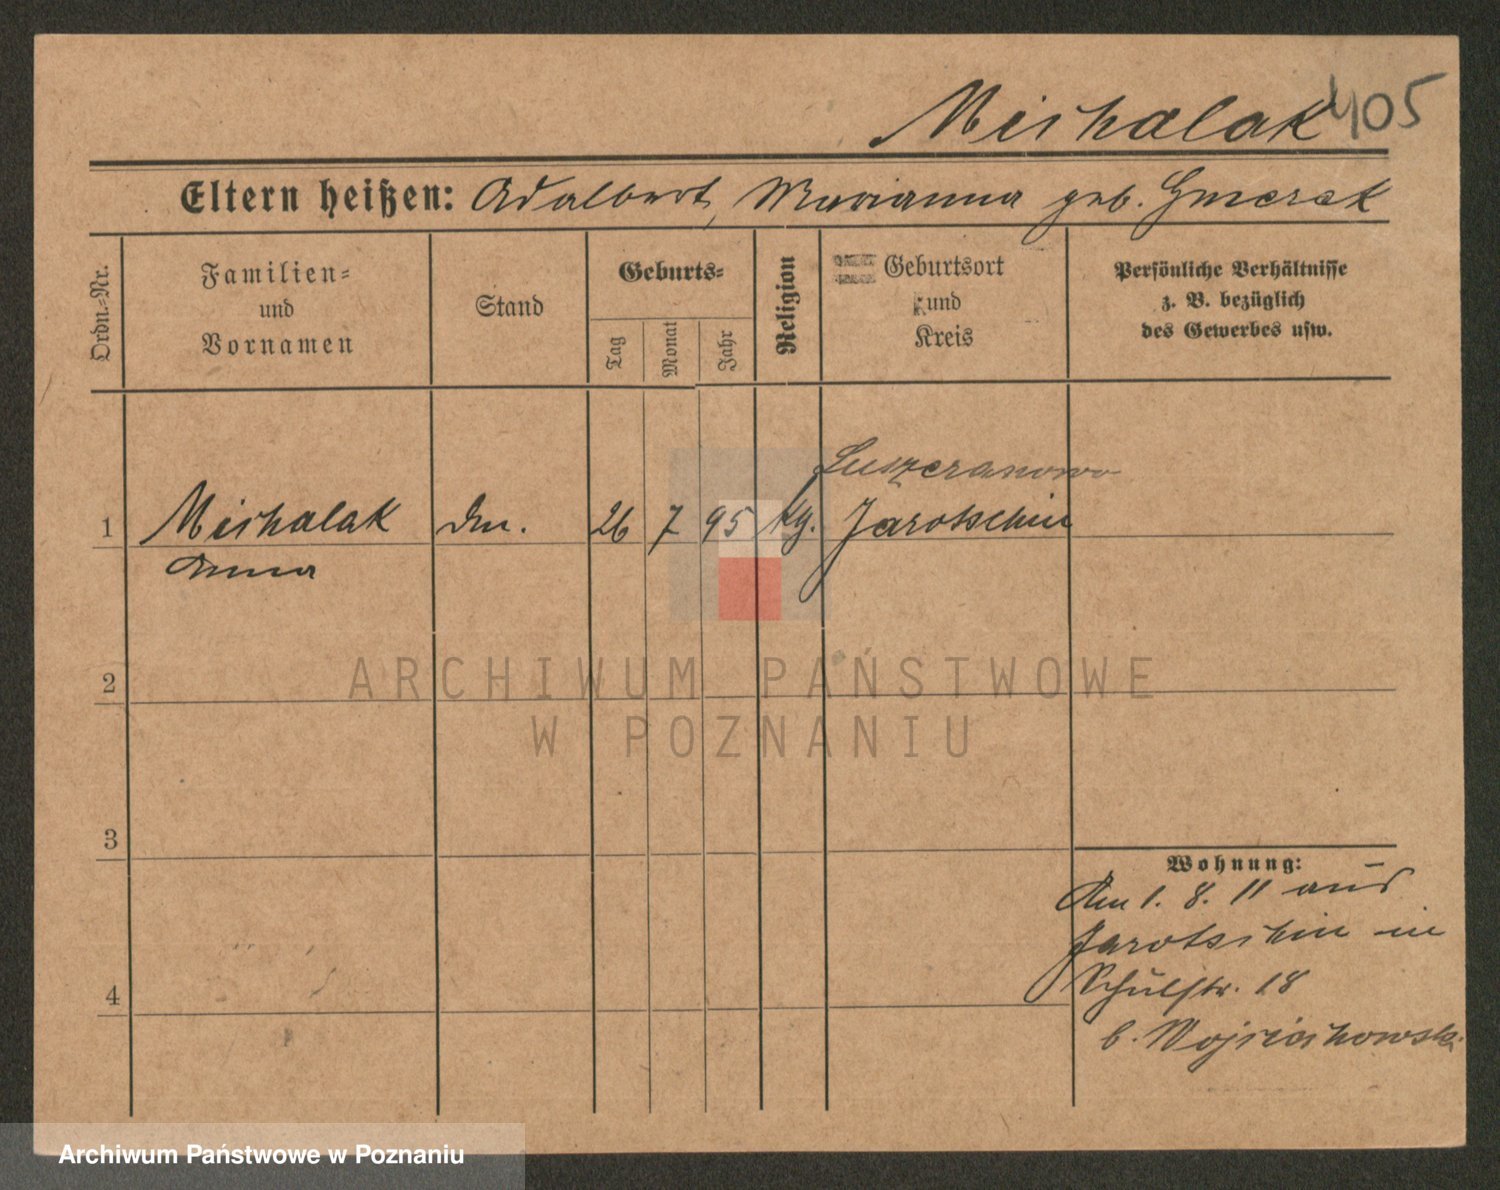 Michalak 405
Eltern heißen: Adalbert, Marianna geb.
Ordn.-Nr.
Familien-
und
Vornamen
Stand
Geburts-
Tag
Monat
Jahr
Religion
Geburtsort
und
Kreis
Persönliche Verhältnisse
z. B. bezüglich
des Gewerbes usw.
1
Michalak
Anna
26
7
95
Jarotschin
2
3
4
Wohnung:
Am 1. 8. 11 aus
Jarotschin in
Schulstr. 18
b. Wojciechowski
ARCHIWUM PAŃSTWOWE
W POZNANIU
Archiwum Państwowe w Poznaniu